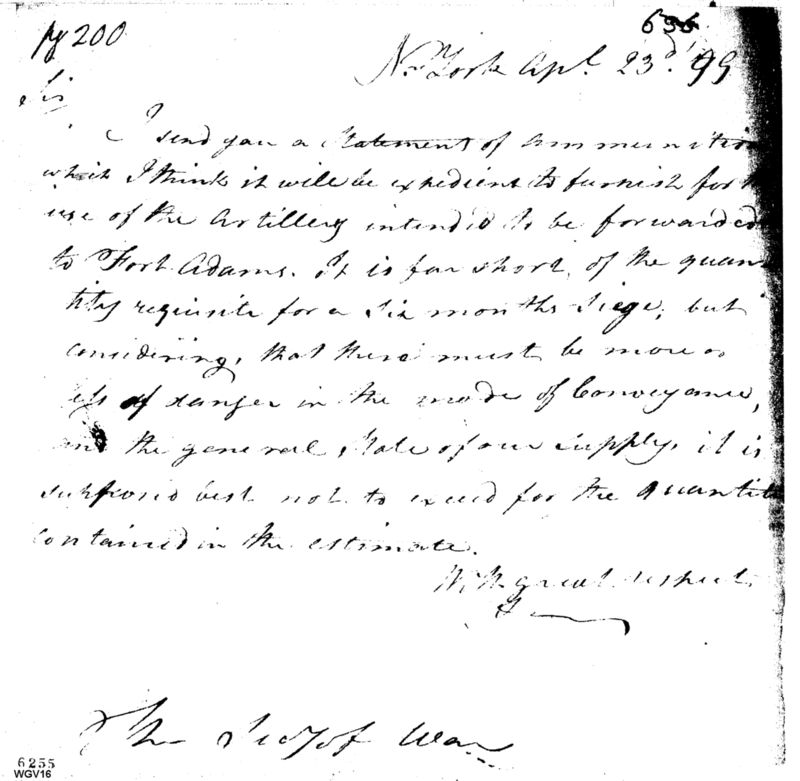 pg 200
636
N. York Apl. 23d. 99
Sir
I send you a Statement of ammunition
which I think it will be expedient to furnish for
use of the Artillery intended to be forwarded
to Fort Adams. It is far short of the quan
tity requisite for a six months siege; but
considering, that there must be more or
less of danger in the mode of Conveyance,
and the general state of our supply, it is
supposed best not to exceed for the quantit
contained in the estimate.
With great respect
The Secy of War
6255
WGV16